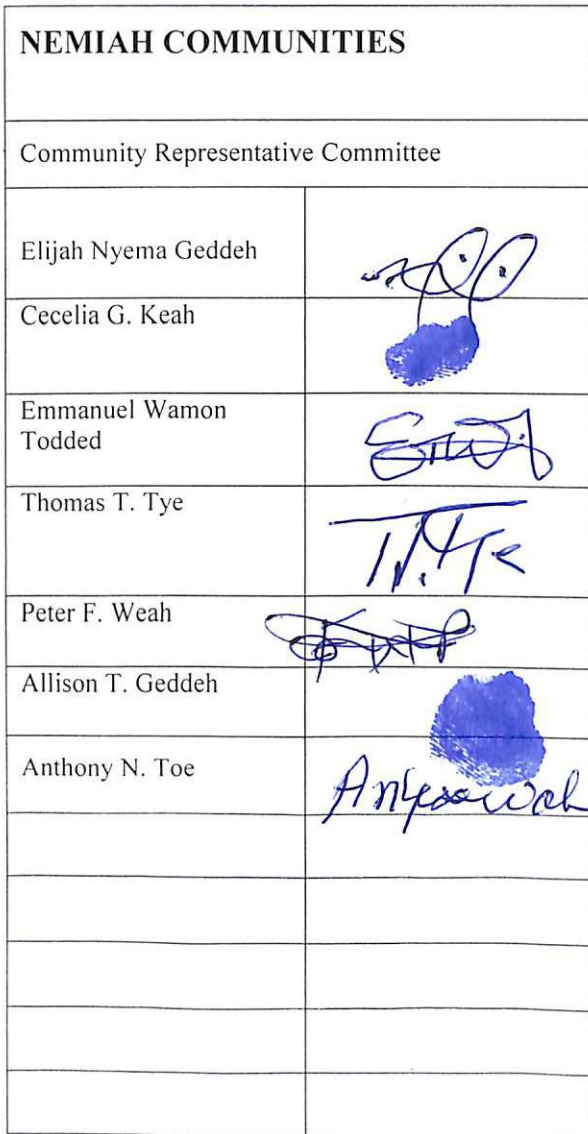 NEMIAH COMMUNITIES
Community Representative Committee
Elijah Nyema Geddeh
Cecelia G. Keah
Emmanuel Wamon
Todded
Thomas T. Tye
Peter F. Weah
Allison T. Geddeh
Anthony N. Toe